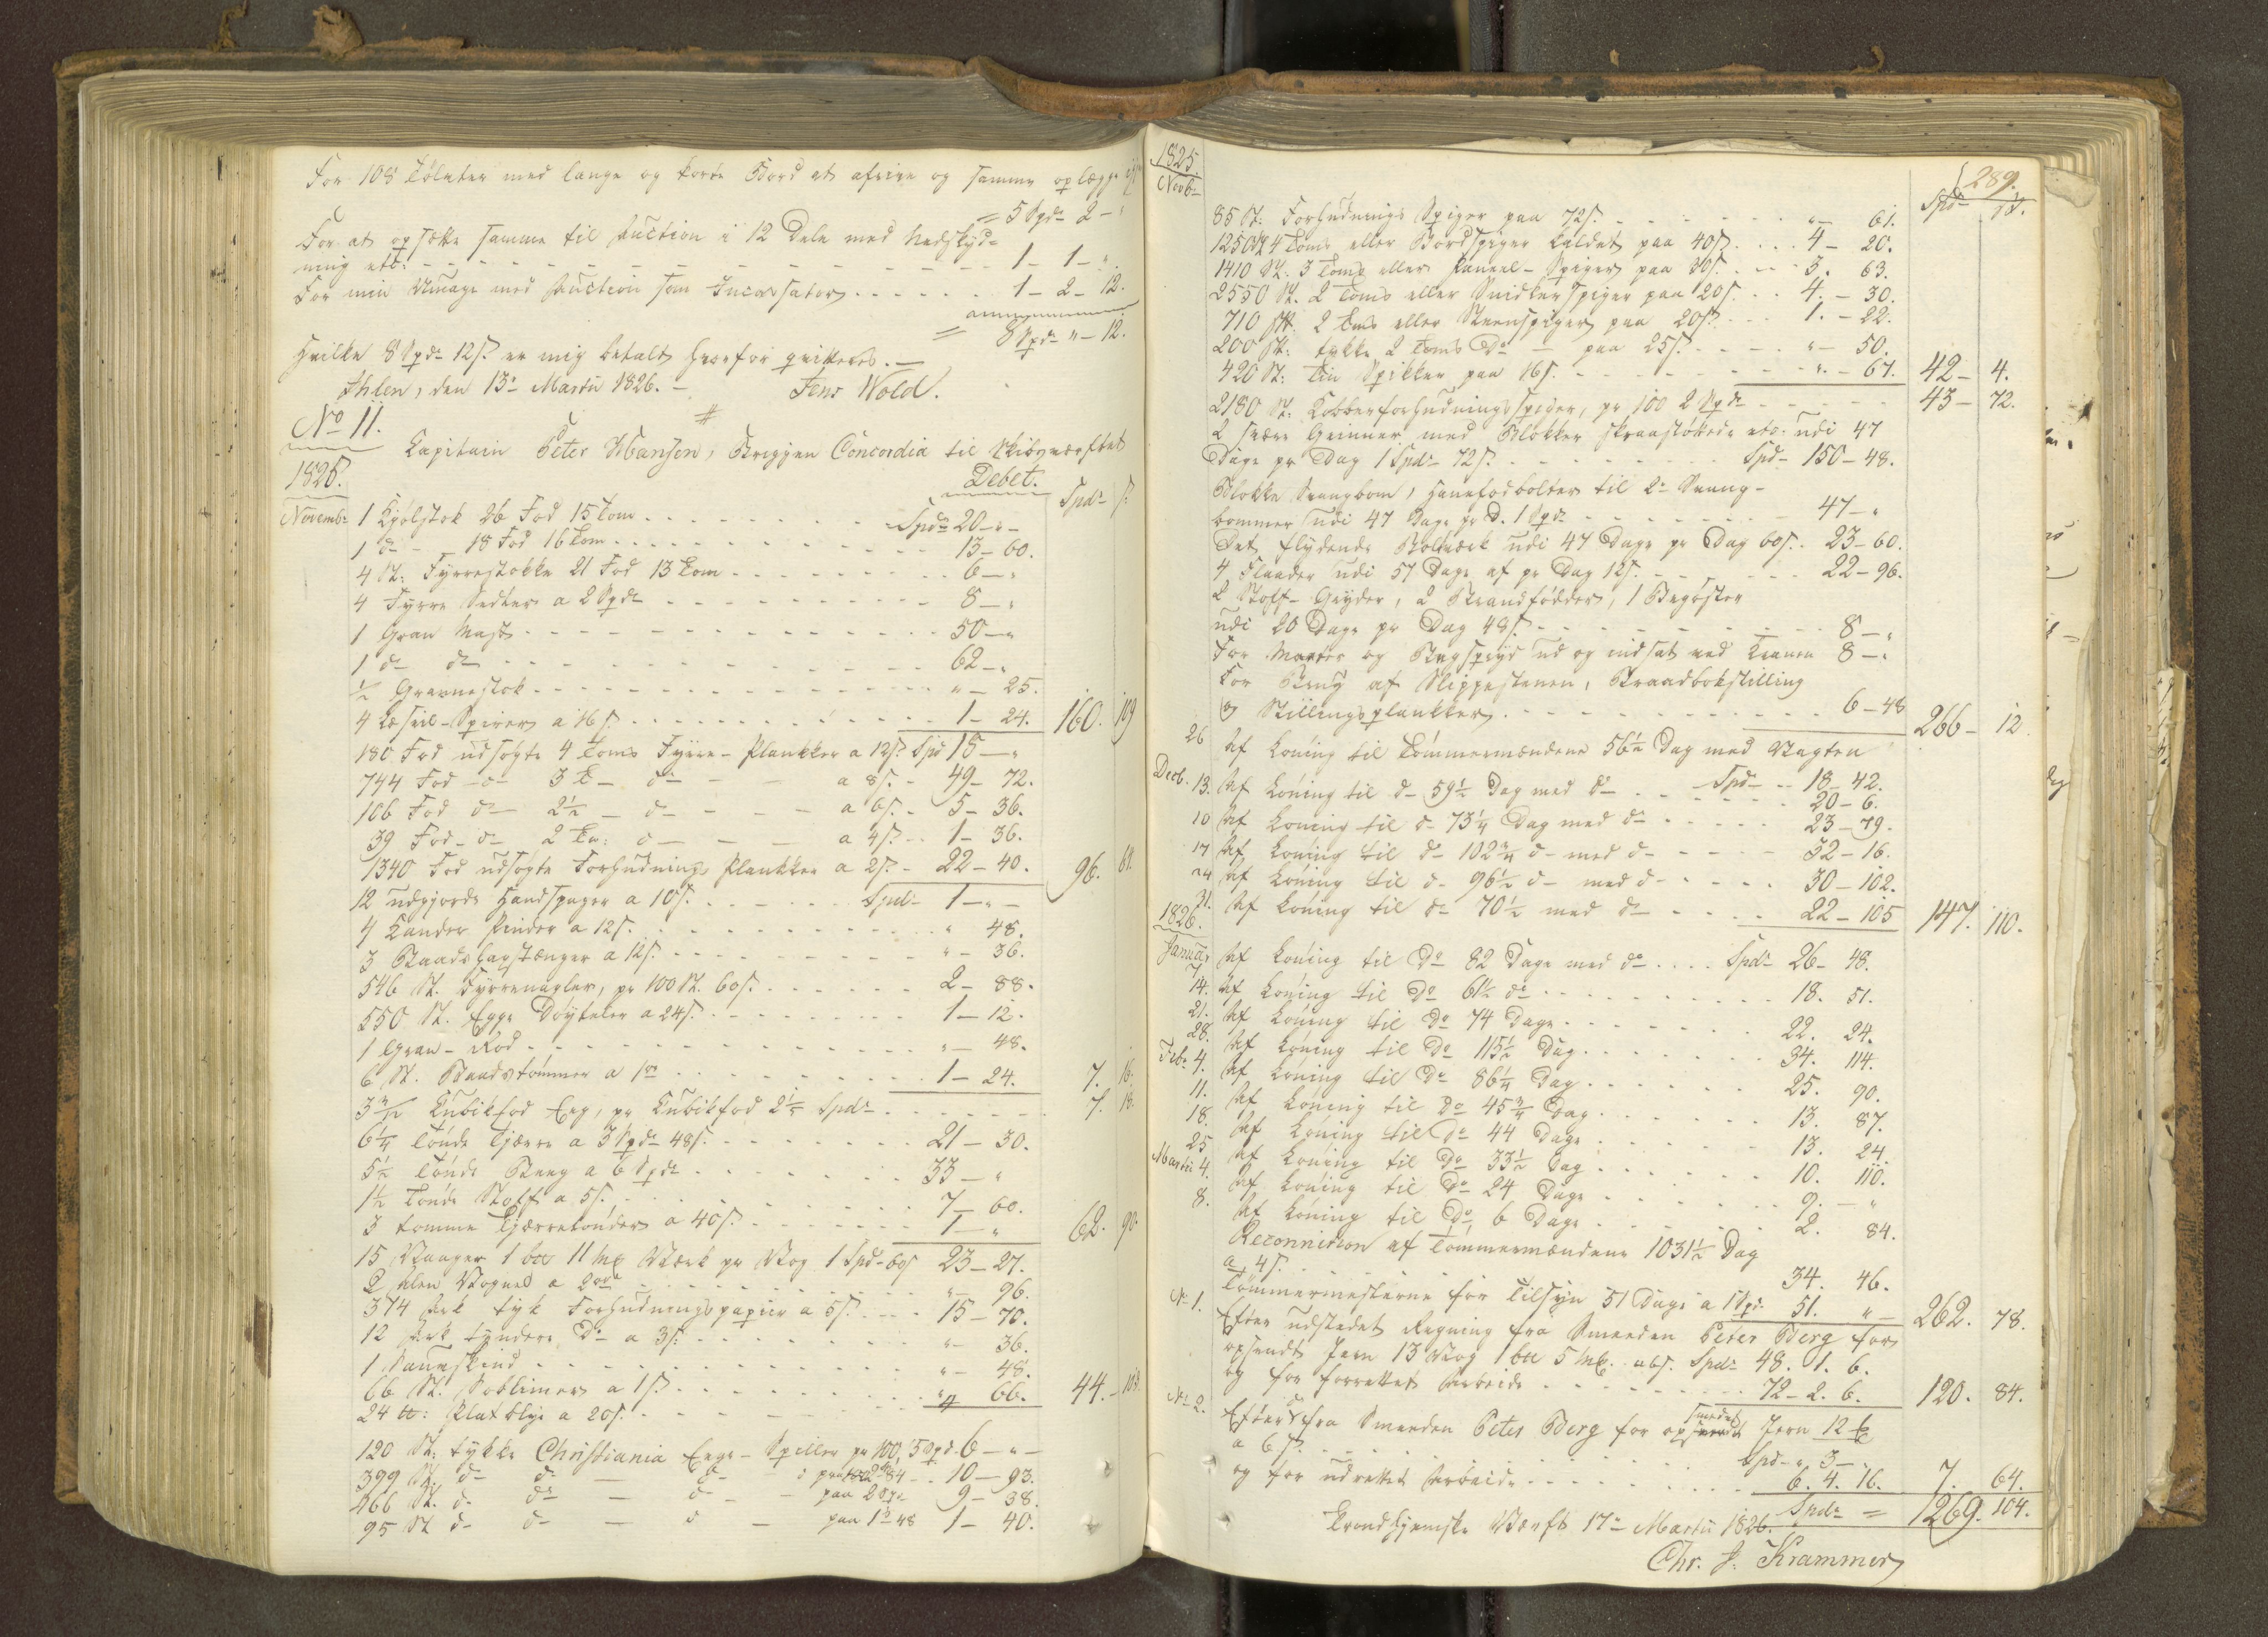 For 108 Tölvter med lange og korte Bord at afrive og samme oplægge
= 5 Spd 2 - "
For at opsætte samme til Auction i 12 Dele med Nedskyd=
ning etc: - - - 1 - 1 - "
For min Umage med Auction som Incassator . . . . 1 - 2 - 12.
= 8 Spd " - 12.
Hvilke 8 Spd 12 s. er mig betalt hvorfor qvitteres. -
Ihlen, den 13 Martii 1826. - Jens Wold.
#
No 11.
Capitain Peter Hansen, Briggen Concordia til Skibsværftet
1825. Debet. Spd s
Novemb 1 Kjölstok 26 Fod 15 Tom . . . . Spd 20 - " -
1 d - 18 Fod 16 Tom . . . . 13 - 60.
4 St: Fyrrestokke 21 Fod 13 Tom . . . . 6 - "
4 Fyrre a 2 Spd . . . . 8 - "
1 Gran Mast . . . . 50 - "
1 d d . . . . 62 - "
1/2 Gravnestok . . . . " - 25.
4 Læseil-Spirer a 16 s . . . . 1 - 24. 160. 109
180 Fod udsögte 4 Toms Fyrre-Plankker a 12 s. Spd 18 - "
744 Fod - d - 3 T - d - - a 8 s. - 49 - 72.
106 Fod d - 2 1/2 - d - - - a 6 s. - 5 - 36.
39 Fod - d - 2 To: d - - a 4 s. - 1 - 36.
1340 Fod udsögte Forhudnings Plankker a 2 s. - 22 - 40. 96. 61.
12 udgjorde Handspager a 10 s. . . . Spd 1 - " -
4 Kander Pinder a 12 s. . . . " 48.
3 Baadshagstænger a 12 s. . . . " - 36.
546 St. Fyrrenagler, pr 100 St. 60 s. . . . 2 - 88.
550 St. Egge Döyteler a 24 s. . . . 1 - 12.
1 Gran-Rod . . . " - 48.
6 St. Baadstömmer a 1 . . . 1 - 24. 7. 16.
3 Kubikfod Eeg, pr Kubikfod 2 Spd . . . 7. 13.
6 1/4 Tönde Tjære a 3 Spd 48 s. . . . 21 - 30.
5 1/2 Tönde Beeg a 6 Spd . . . 33 - "
1 1/2 Tönde Stoff a 5 s. . . . 7 - 60.
3 tomme Tjærretönder a 40 s. . . . 1 - " 62. 90.
15 Vaager 1 11 Værk pr Vog 1 Spd 60 s 23 - 27.
2 Alen a 2 . . . " - 96.
374 Ark tyk Forhudningspapier a 5 s. . . . 15 - 70.
12 Ark tyndere D a 3 s. . . . " - 36.
1 Saueskind . . . " - 48.
66 St. Soblimer a 1 s. . . . " 66. 44. - 103
24 : Platblye a 20 s. . . . 4
120 St: tykke Christiania Eege-Spiller pr 100, 5 Spd 6 - " -
399 St. d d - d - 84 - 10 - 93.
466 St. d d - d - paa 2 Spd 9 - 38.
95 St d - d - d - paa 1 48 1 - 40.
289.
1825. Spd s.
Novb 85 St: Forhudnings Spiger paa 72 s. . . . " - 61.
1250 St 4 Toms eller Bordspiger kaldet paa 40 s . . . 4 - 20.
1410 St. 3 Toms eller Paneel-Spiger paa 30 s. . . . 3. 63.
2550 St. 2 Toms eller Snidkerspiger paa 20 s. . . 4. - 30.
710 St: 2 Toms eller Steenspiger paa 20 s. . . . 1. - 22.
200 St: tykke 2 Toms D - paa 25 s. . . . " - 50.
420 St: Tin Spikker paa 16 s. . . . " - 67. 42 - 4.
2180 St. Kobberforhudningsspiger, pr 100 2 Spd - - - 43 - 72.
2 svære Gvinner med Blokker etc: udi 47
Dage pr Dag 1 Spd 72 s. . . . Spd - 150 - 48.
Blokke Svangbom, Hanefodbolter til 2 Svang-
bommer udi 47 Dage pr D. 1 Spd . . . 47 - "
Det flydende Bolværk udi 47 Dage pr Dag 60 s. . 23 - 60.
4 Flaader udi 57 Dage af pr Dag 12 s. . . . 22 - 96.
2 Stoff-Gryder, 2 Strandfödder, 1
udi 20 Dage pr Dag 48 s. . . . 8 - "
For Master og Bugspryd ud og indsat ved Kranen 8 - "
For Brug af Slippestenen, Braadbokstilling
og Stillingsplankker . . . 6 - 48 266 - 12
26 Af Koning til Tömmermændene 56 1/2 Dag med Vagten
Spd - - 18 - 42.
Decb. 13. Af Koning til d 59 1/2 Dag med d . . . 20 - 6.
10 Af Koning til d 73 1/4 Dag med d . . . 23 - 79.
17 Af Koning til d 102 3/4 d med d . . . 32 - 16.
24 Af Koning til d 96 1/2 d - med d . . . 30 - 102.
31. Af Koning til d 70 1/2 med d . . . 22 - 105 147. 110.
1826.
Januar 7 Af Koning til D 82 Dage med d . . . Spd 26 - 48.
14. Af Koning til D 61 1/2 d . . . 18. 51.
21. Af Koning til D 74 Dage . . . 22. 24.
28. Af Koning til D 115 1/2 Dag . . . 34. 114.
Feb 4. Af Koning til D 86 1/4 Dag . . . 25. 90.
11. Af Koning til D 45 3/4 Dag . . . 13. 87.
18. Af Koning til D 44 Dage . . . 13. 24.
25 Af Koning til D 33 1/2 Dag . . . 10. 110.
Martii 4. Af Koning til D 24 Dage . . . 9. - "
8. Af Koning til D 6 Dage . . . 2. 84.
Reconnition af Tömmermændene 1031 1/2 Dag
a 4 s. . . . 34. 46.
Tömmermesterne for Tilsyn 51 Dage a 1 Spd 51. " - 262. 78.
No 1. Efter udstedet Regning fra Smeeden Peter Berg for
opsendt Jern 13 Vog 1 5 a 6 s. Spd 48. 1. 6.
og for forrettet Arbeide . . . 72 - 2. 6. 120. 84.
No 2. Efter d fra Smeeden Peter Berg for opsmedet Jern 12
a 6 s. . . . Spd - " 3 - "
og for udrettet Arbeide . . . 6. 4. 16. 7. 64.
Spd = 1269. 104.
Trondhjemske Værft 17 Martii 1826.
Chr. J. Krammer